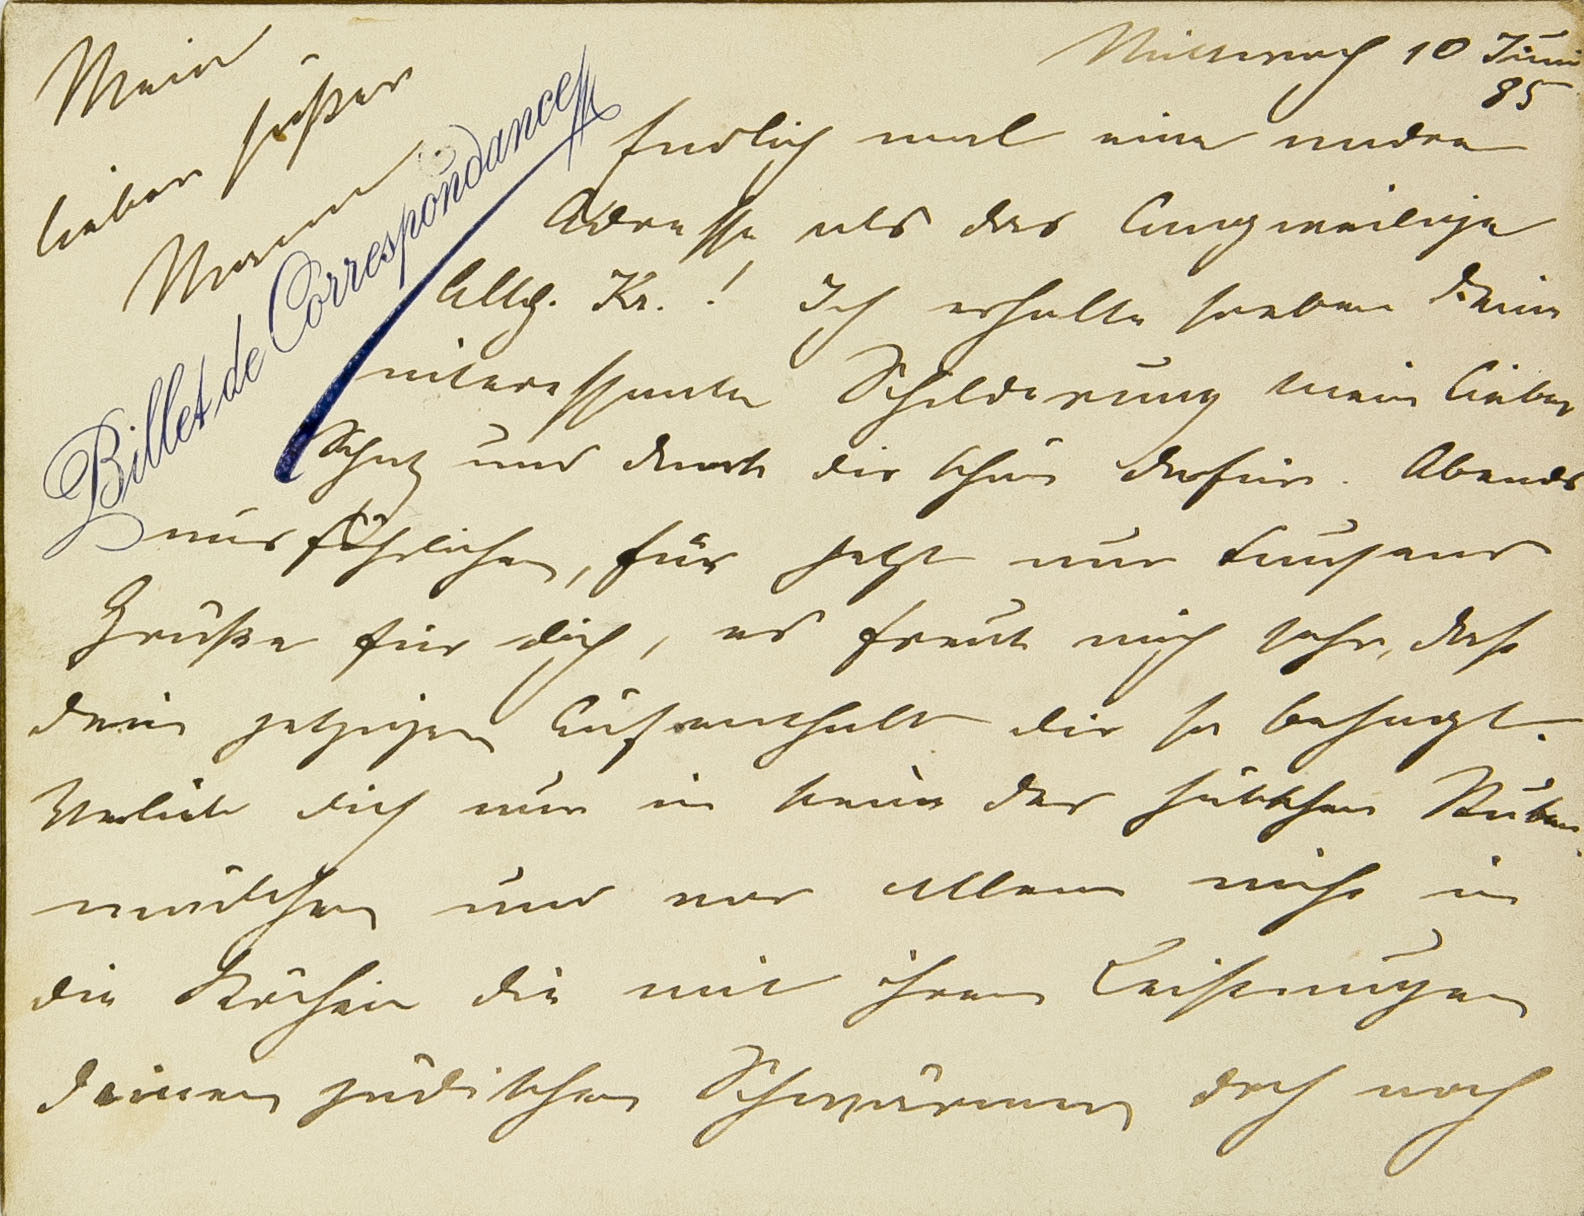 Mittwoch 10 Juni
85
Mein
lieber süßer
Mann
Billet de Correspondance
Endlich mal eine andre
Adresse als das langweilige
Allg. Kr.! Ich erhalte soeben Deine
interessante Schilderung mein lieber
Schatz und danke dir schön dafür. Abends
ausführlicher, für jetzt nur tausend
Grüße für dich, es freut mich sehr, daß
dein jetziger Aufenthalt dir so behagt.
Verlieb dich nur in keins der hübschen Stuben
mädchen und vor allem nicht in
die Köchin die mit ihren Leistungen
deinen jüdischen Schwärmen doch noch